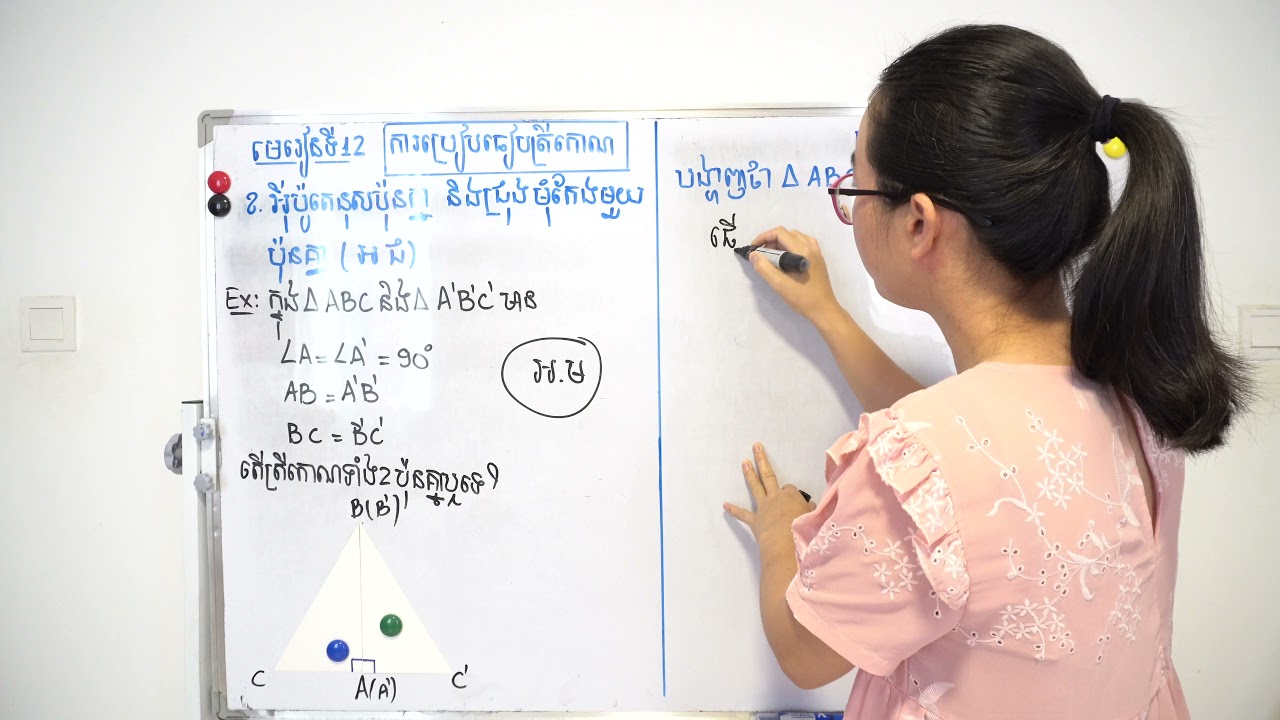 មេរៀនទី12 ការប្រៀបធៀបត្រីកោណ
2. អ៊ីប៉ូតេនុសប៉ុនគ្នា និងជ្រុងមុំកែងមួយ
ប៉ុនគ្នា (អ ជ)
Ex: ក្នុង Δ ABC និង Δ A'B'C' មាន
∠A = ∠A' = 90°
AB = A'B'
BC = B'C'
អ.ម
តើត្រីកោណទាំង2ប៉ុនគ្នាឬទេ?
B(B')
C
A(A')
C'
បង្ហាញថា Δ AB
ដើ